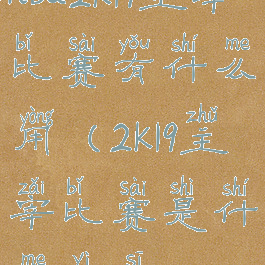 2k19主宰
bǐ sài yǒu shí me
比赛有什么
yòng zhǔ
用（2K19主
zǎi bǐ sài shì shí
宰比赛是什
me yì sī